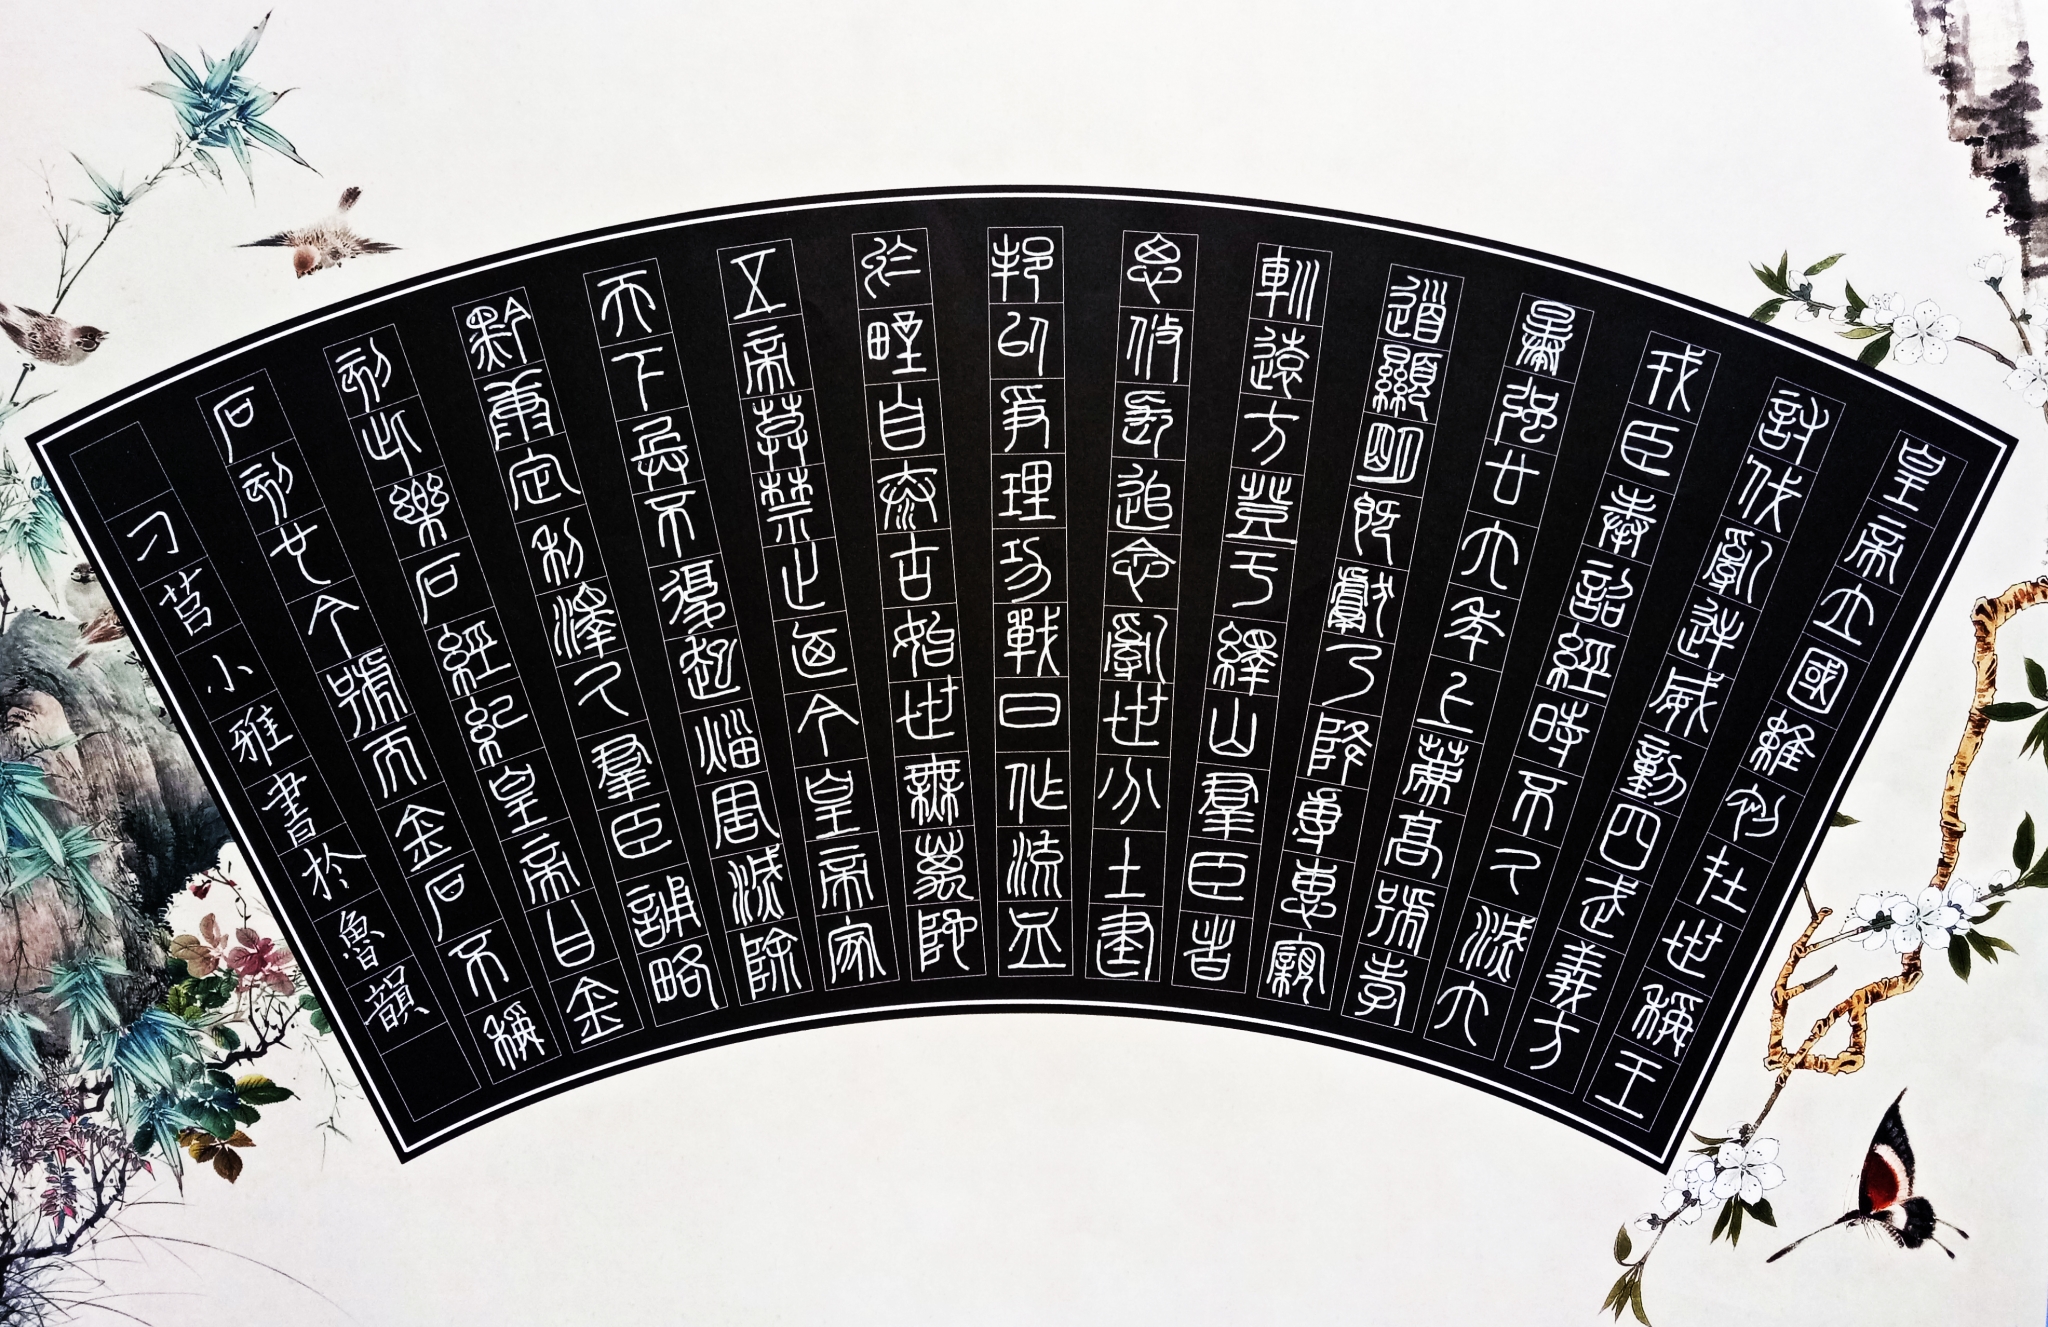 皇帝立國維初在世稱王
討伐亂逆威動四武義方
戎臣奉詔經時不久滅六
暴強廿六年上薦高號孝
道顯明既獻乃降專惠親
巡遠方登于繹山群臣者
思攸長追念亂世分土建
邦以爭理功戰日作流血
於野自泰古始世無萬陀
五帝莫禁止迺今皇帝家
天下兵不復起災害滅除
黔康定利澤久群臣誦略
刻此樂石經紀皇帝曰金
石刻也今號而金石不稱
刁莒小雅書於魯韻